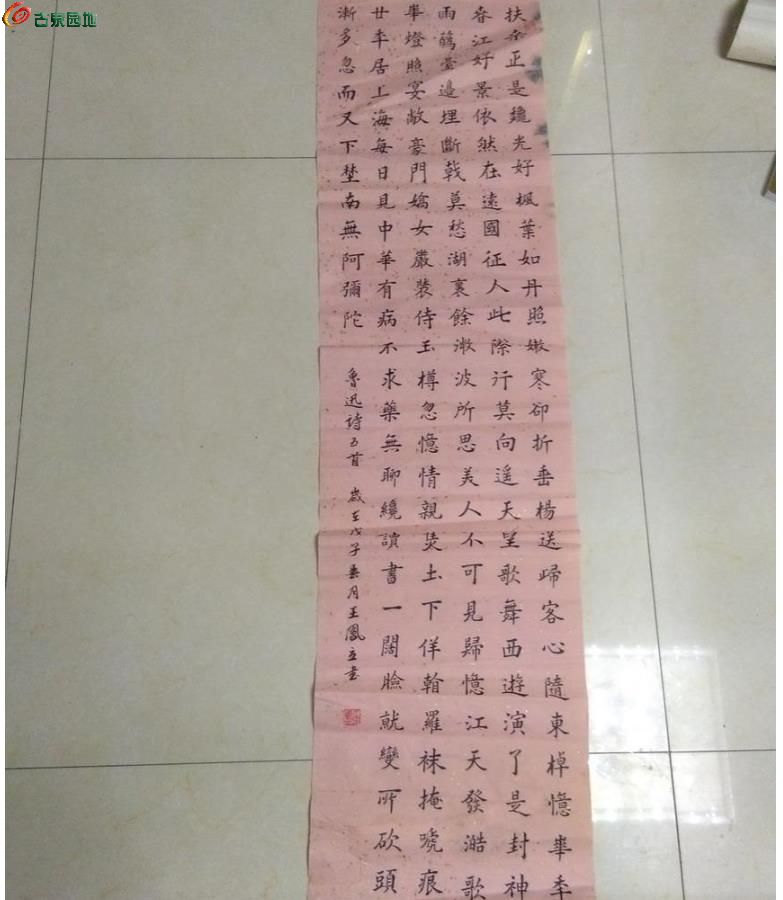 古泉园地
扶桑正是穐光好楓葉如丹照嫩寒卻折垂楊送歸客心隨東棹憶華年
春江好景依然在遠國征人此際行莫向遥天望歌舞西遊演了是封神
雨鷂臺邊埋斷戟莫愁湖裏餘澂波所思美人不可見歸憶江天發澔歌
華燈照宴敞豪門嬌女嚴裝侍玉樽忽憶情親焦土下佯看羅袜掩嗁痕
廿年居上海每日見中華有病不求藥無聊纔讀書一闊臉就變所砍頭
漸多忽而又下埜南無阿彌陀
魯迅詩五首 歲在戊子 月王鳳立書